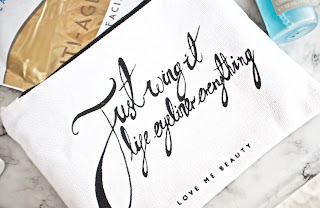 ANTI-AGI
FACIAL
Just wing it
life eyeliner everything
LOVE ME BEAUTY